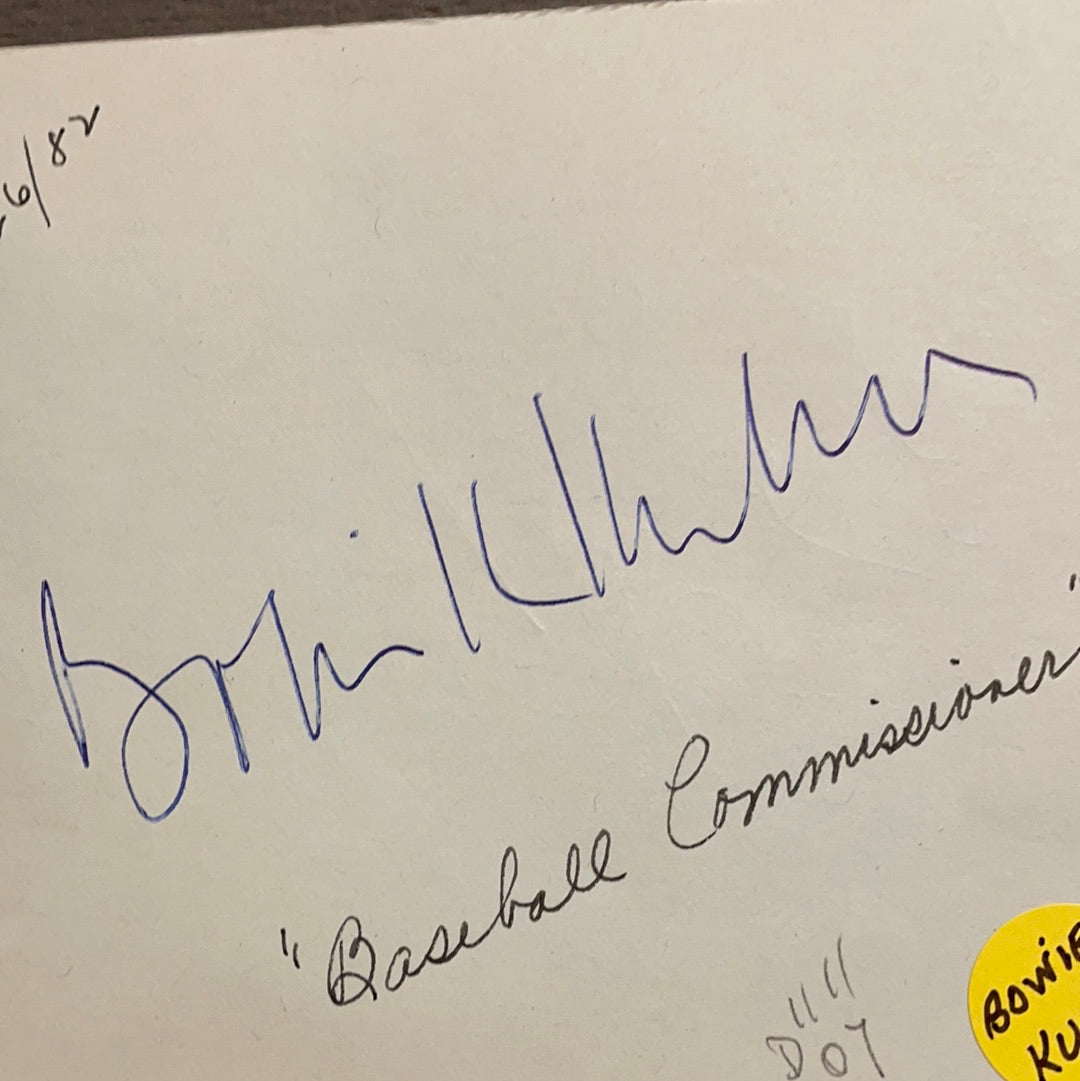 6/82
Bowie Kuhn
"Baseball Commissioner"
BOWIE
KU